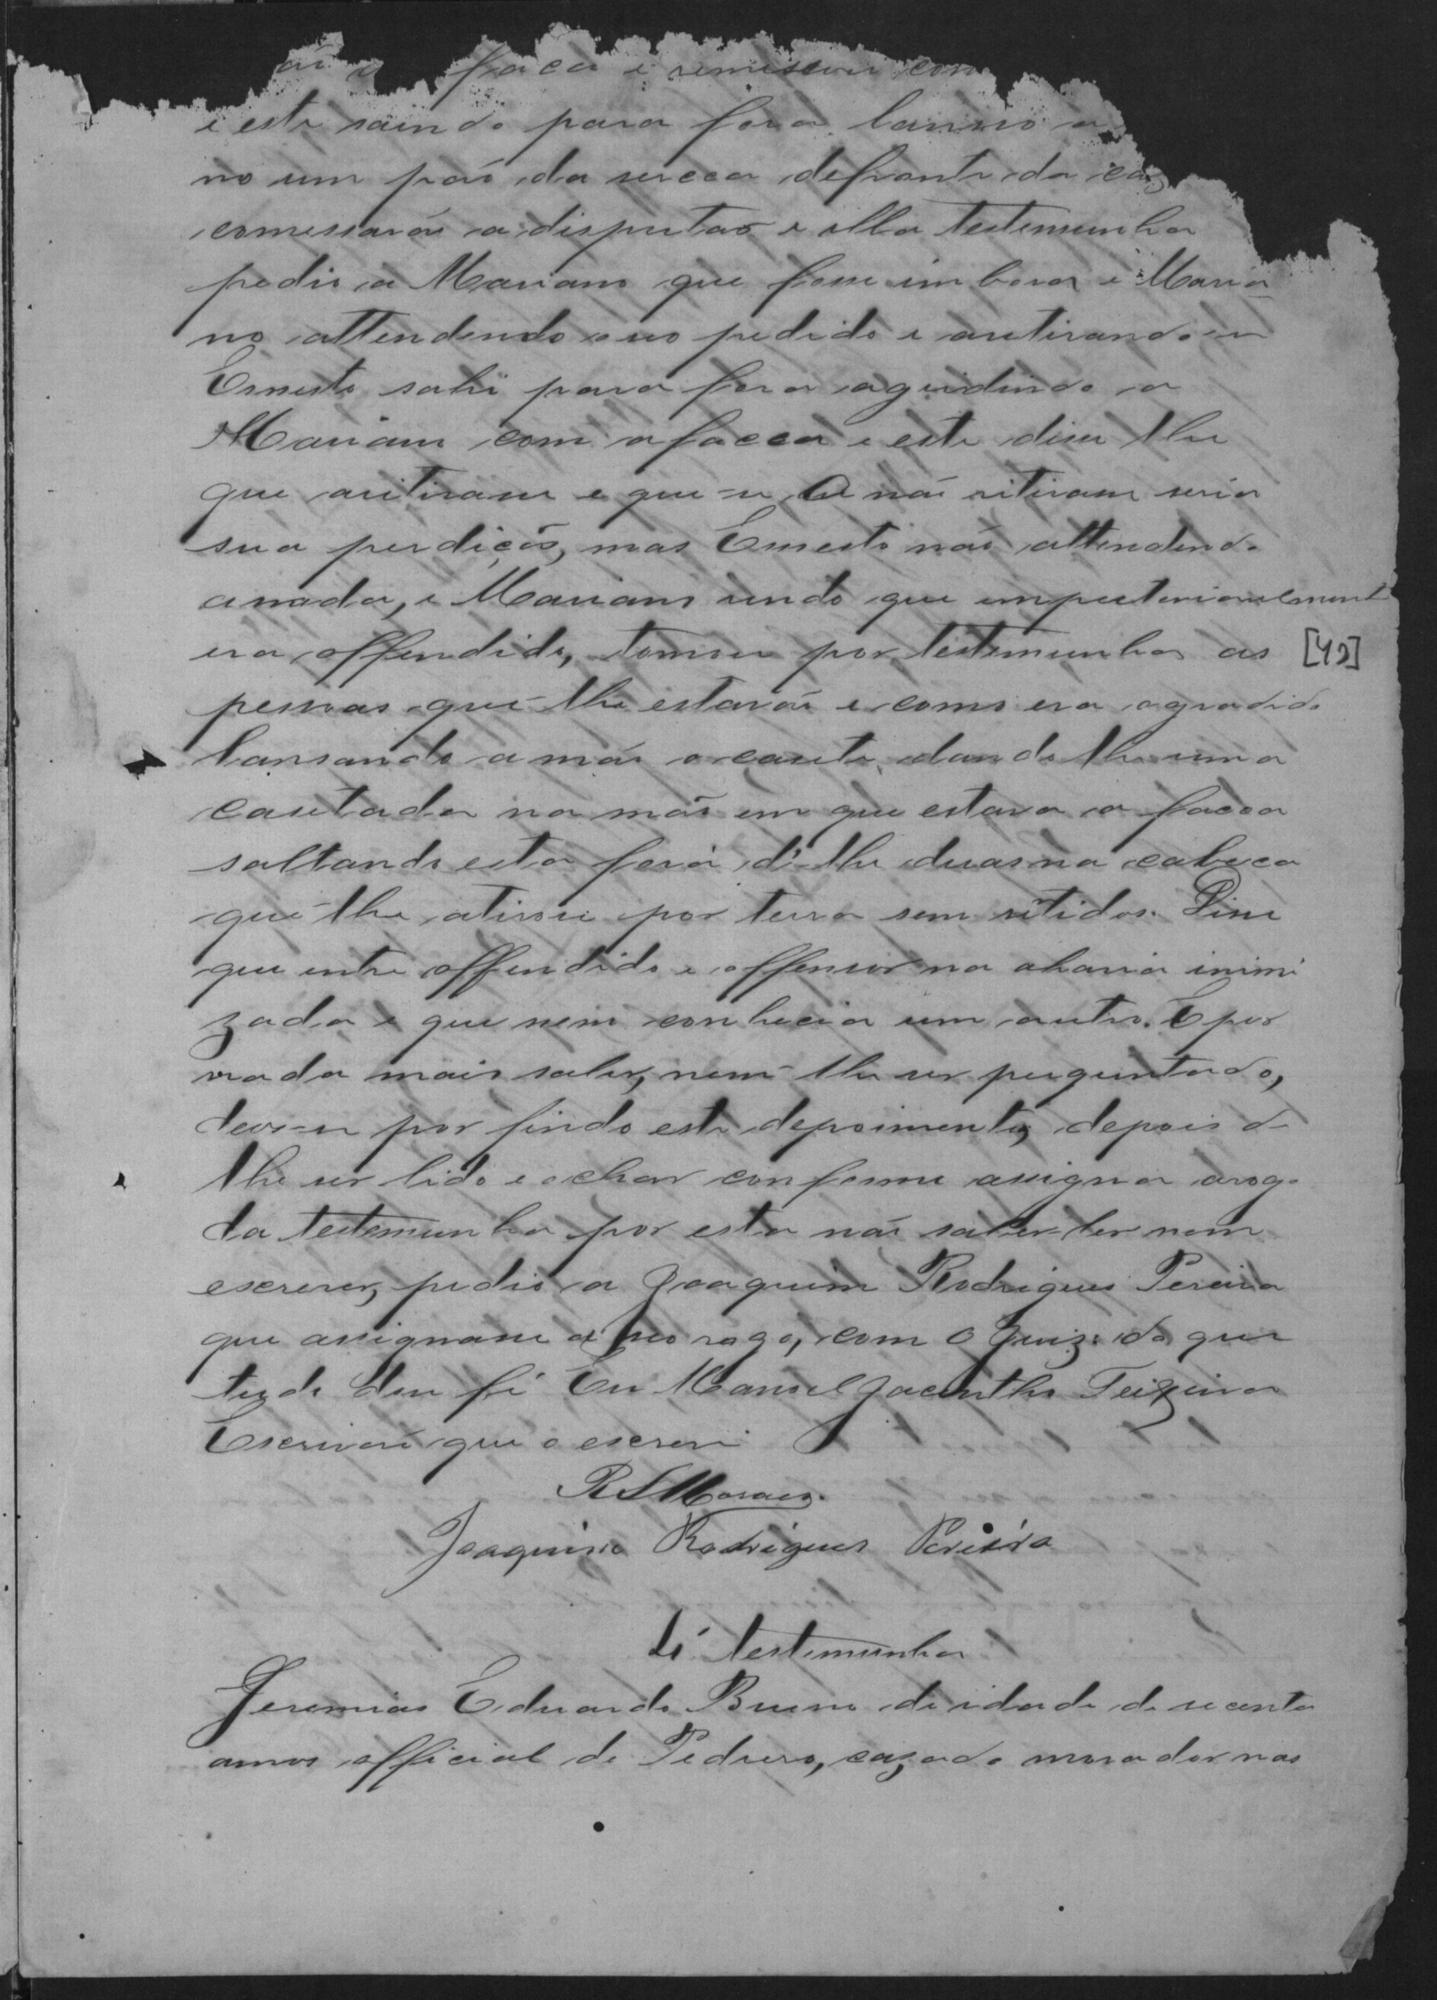 faca e remesseu com
e este saindo para fora lansou a
no um páo da sercca defronte da caz
comessaráo a disputao e ella testemunha
pedio a Mariano que fosse imbora e Maria
no attendendo seo pedido e aretirandose
Ernesto sahi para fora agridindo a
Mariano com a facca e este disse lhe
que aritirase e que se não ritirase seria
sua perdicão, mas Ernesto não attendendo
anada, e Mariano vendo que
era offendido, tomou por testemunha as
[42]
pessoas que lhe estaváo e como era agradido
lansando a mão o casete, dando lhe uma
casetada na mão em que estava a facca
saltando esta fora, di lhe duas na cabeca
que lhe atirou por terra sem sitidos. Disse
que entre offendido e offensor na ahavia inimi
zada e que nem conhecia um autro. E por
nada mais saber, nem lhe ser preguntado,
deos-se por findo este depoimento, depois de
lhe ser lido e achar conforme assigna arogo
da testemunha por esta não saber ler nem
escrever, pedio a Joaquim Rodrigues Pereira
que assignase a seo rogo, com o Juiz do que
tudo dou fé Eu Manoel Jacintho Teixeira
Escrivão que o escrevi
R S Moraes.
Joaquim Rodrigues Pereira
testemunha
Jeremias Eduardo Bueno de idade de secenta
annos official de Pedrero, cazado morador nas